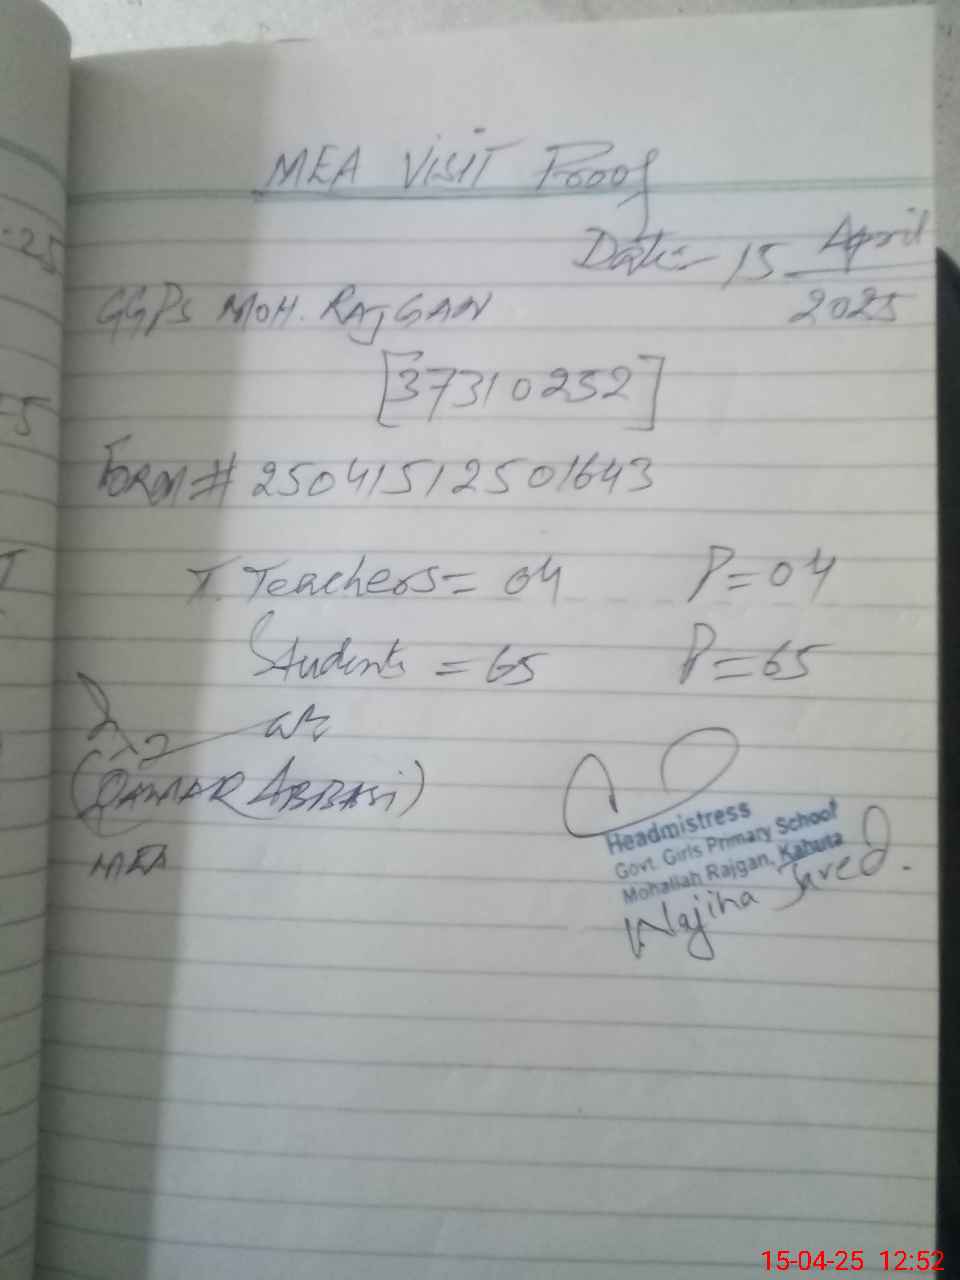 MEA VISIT Proof
Date:- 15 April
2025
GGPS MOH. RAJGAN
[37310232]
Form # 25041512501643
T. Teachers = 04 P = 04
Students = 65 P = 65
(QAMAR ABBASI)
MEA
Headmistress
Govt. Girls Primary School
Mohallah Rajgan, Kahuta
Wajiha Javed.
15-04-25 12:52